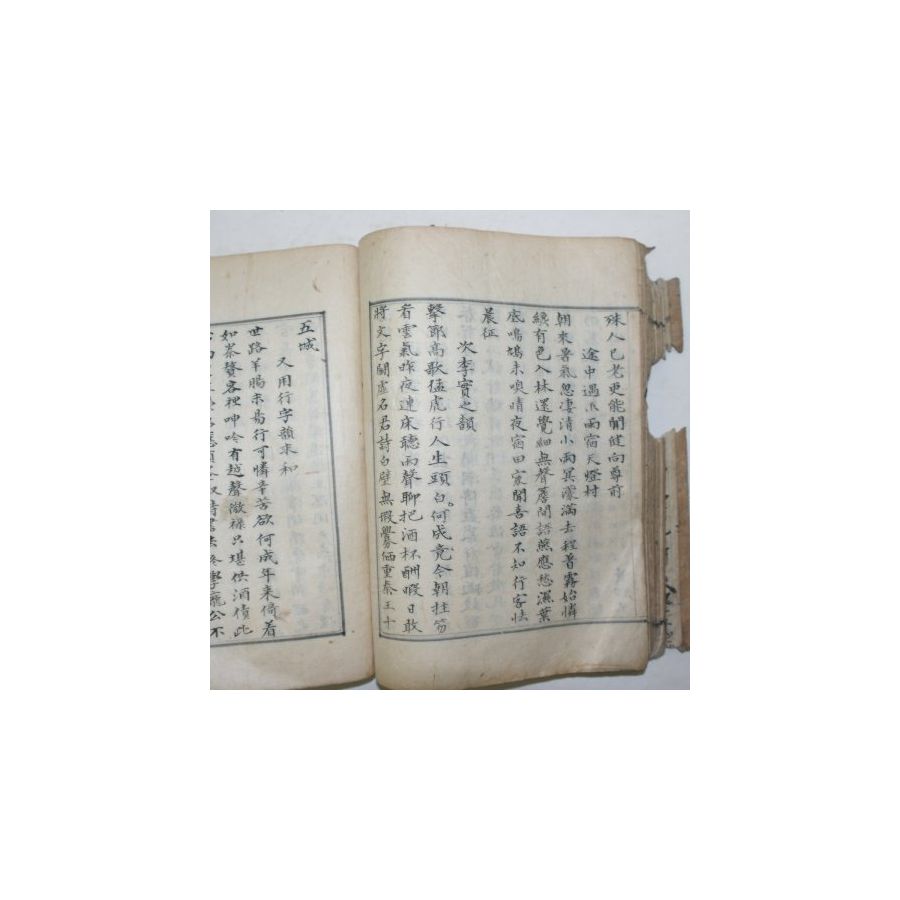 殊人已老更能開健向尊前
途中遇雨宿天燈村
朝來旱氣忽凄清小雨冥濛滿去程着霧始憐
纔有色入林還覺細無聲簷間語燕應愁濕葉
底鳴鳩未喚晴夜宿田家聞喜語不知行客怯
晨征
次李實之韻
擊節高歌猛虎行人生頭白何成竟今朝拄笏
看雲氣昨夜連床聽雨聲聊把酒杯酬暇日敢
將文字鬪虛名君詩白璧無瑕釁価重秦王十
五城
又用行字韻求和
世路羊腸未易行可憐辛苦欲何成年來倚着
如秦贅客裡呻吟有越聲微祿只堪供酒債此
公不